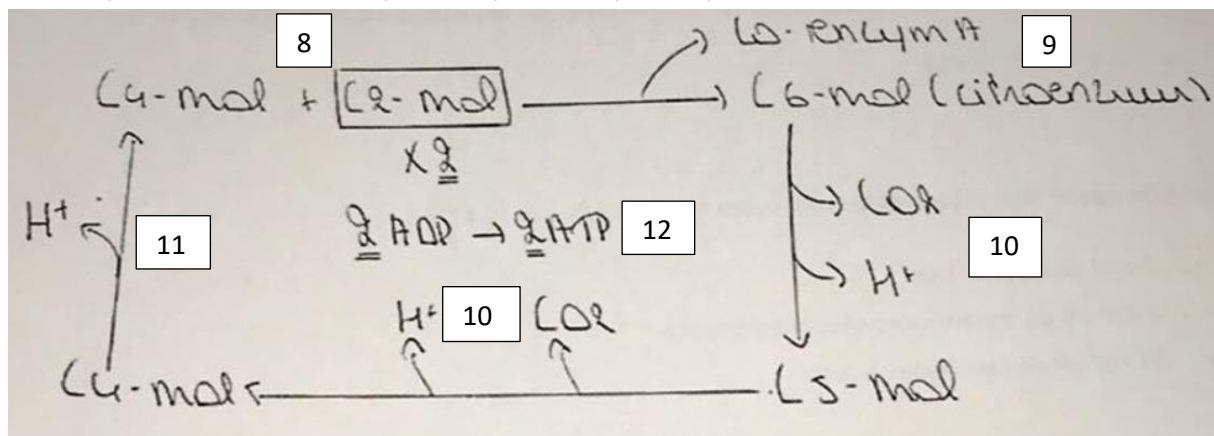 8 Co-enzym A 9
C4-mol + C2-mol C6-mol (citroenzuur)
x 2
H+ 11 2 ADP → 2 ATP 12 CO2
H+ 10
H+ 10 CO2
C4-mol C5-mol